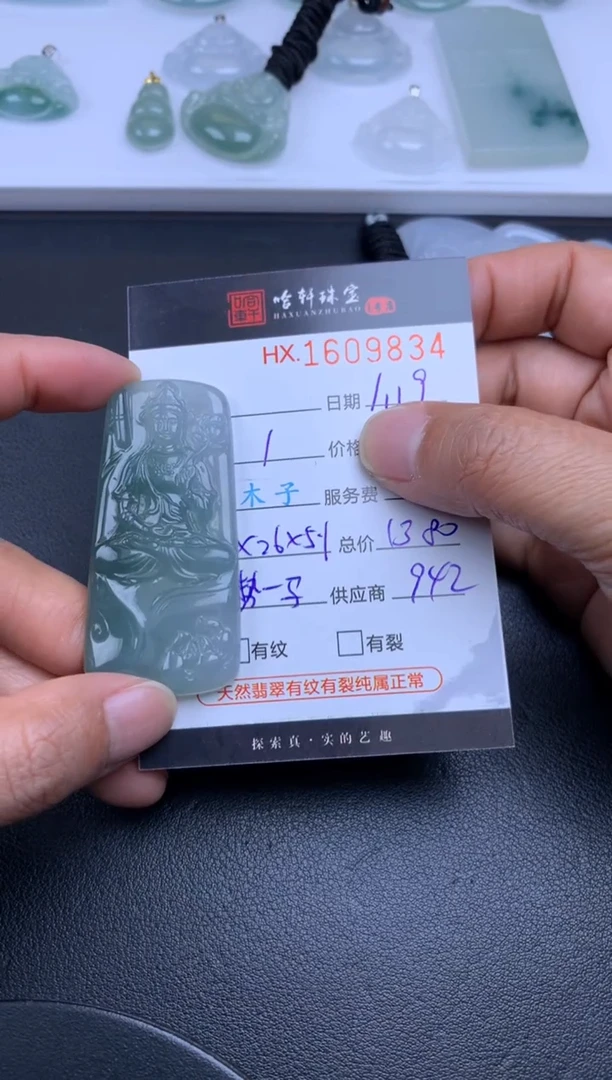 哈轩珠宝
HAXUANZHUBAO
HX.1609834
日期
1 价格
木子 服务费
×26×5.1 总价 1380
势一号 供应商 942
有纹 有裂
天然翡翠有纹有裂纯属正常
探索真·实的艺趣